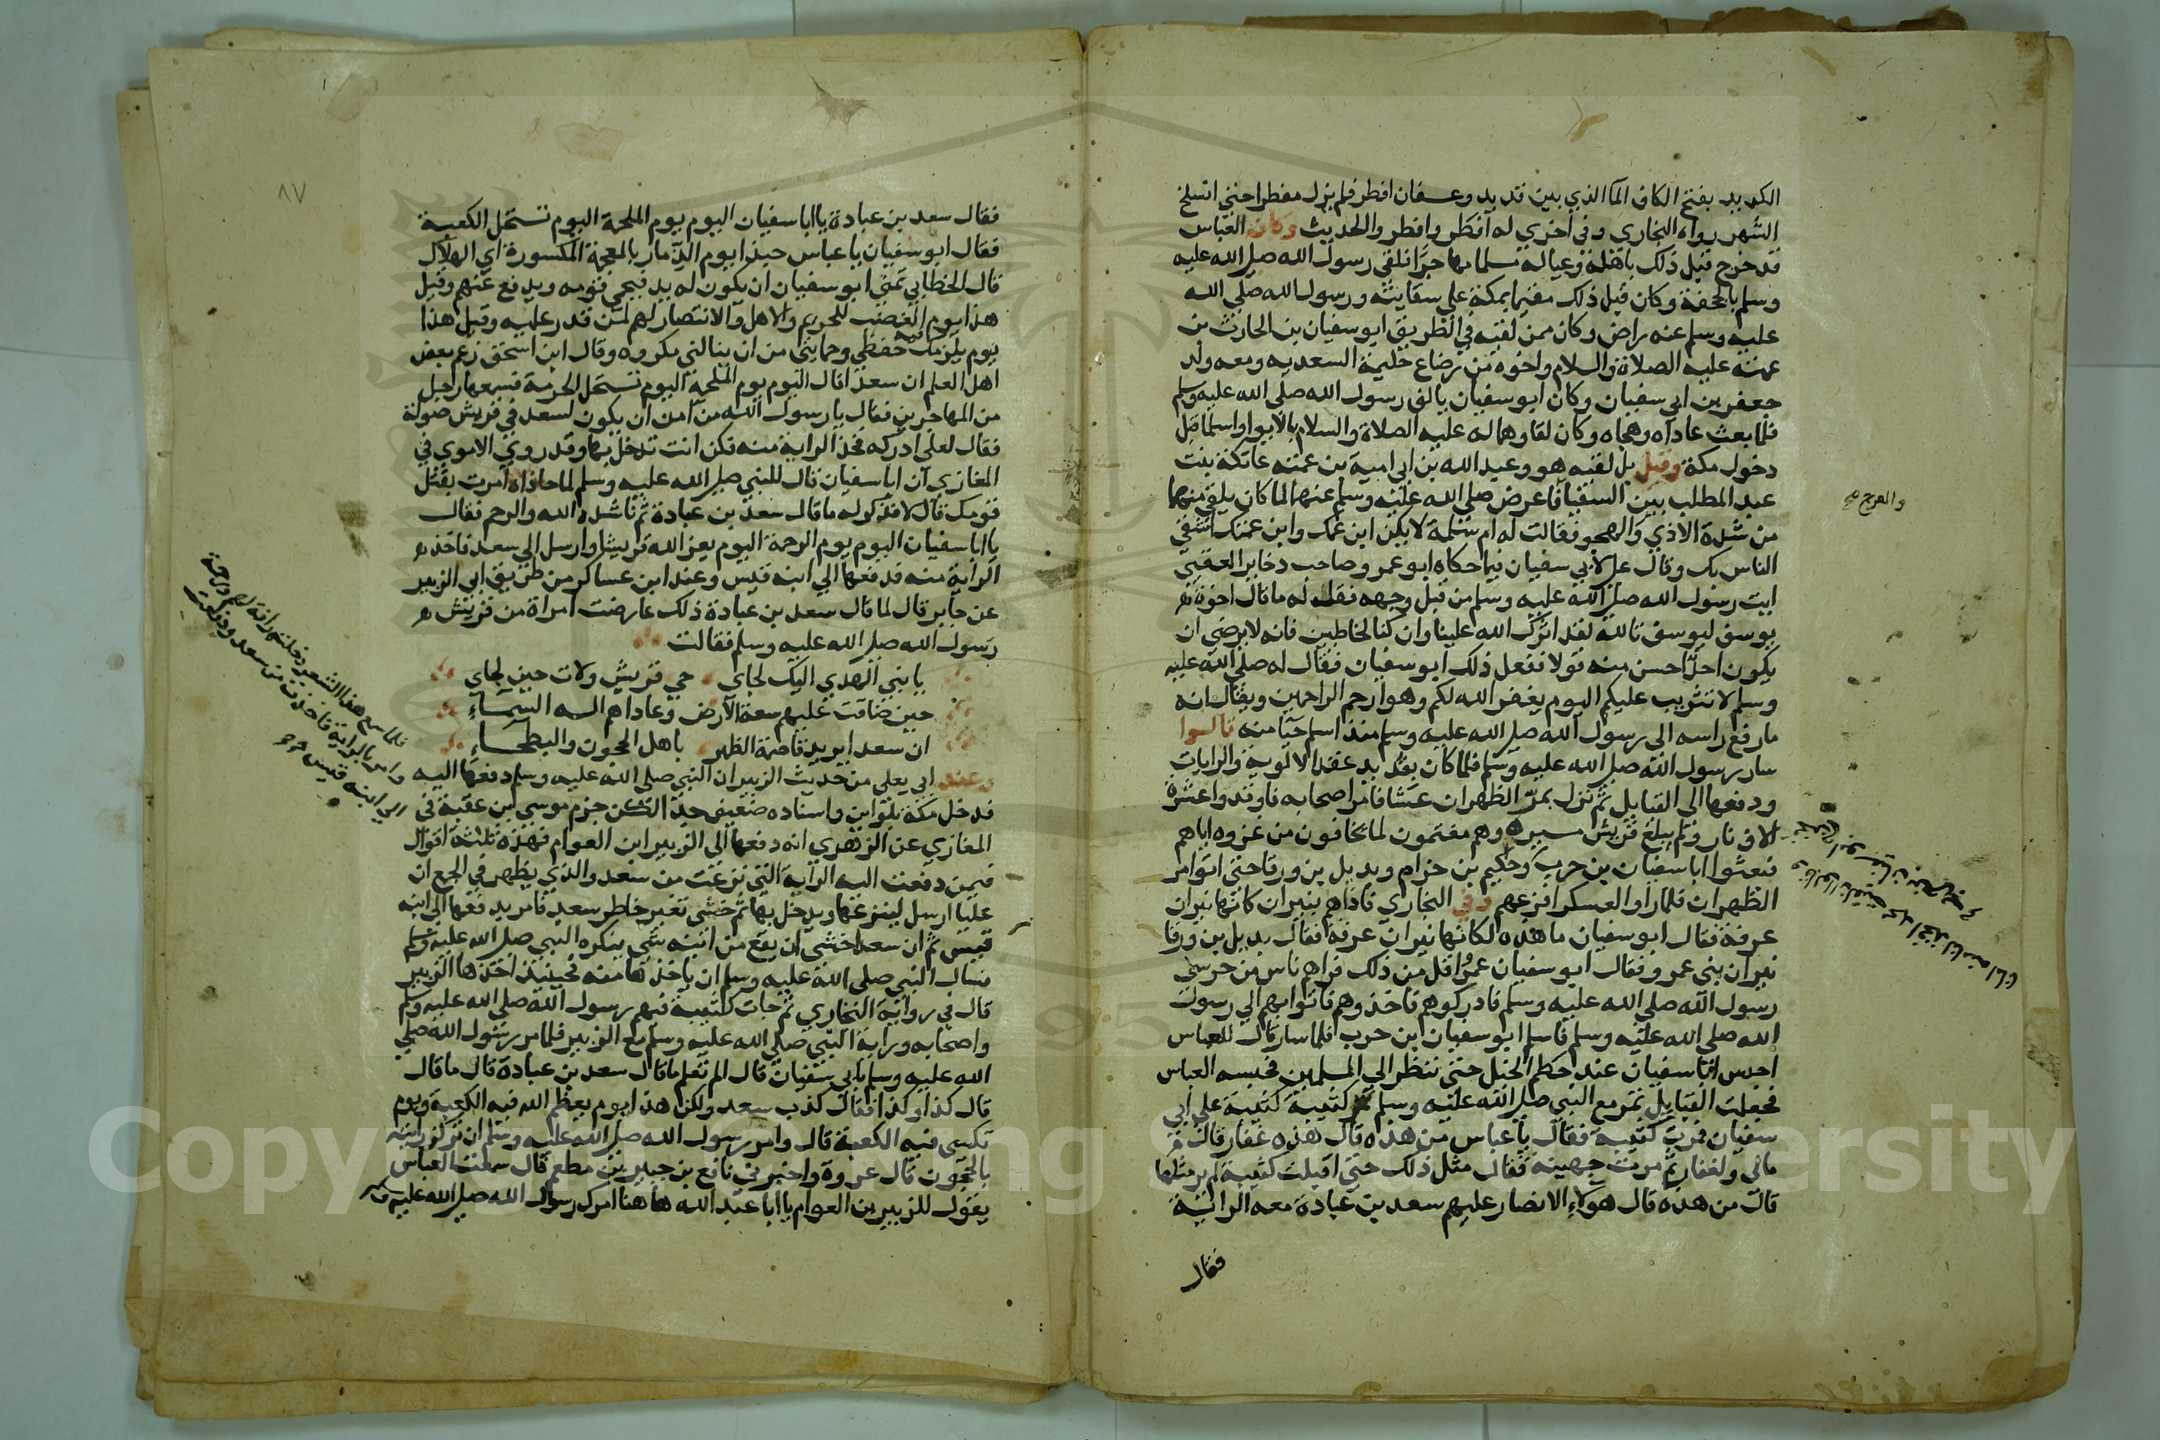 الكديد بفتح الكاف المآ الذي بين قديد وعسفان افطر فلم يزل مفطرا حتى انسلخ
الشهر رواه البخاري وفي أخري له أفطر وافطروا الحديث وكان العباس
قد خرج قبل ذلك باهله وعياله مسلما مهاجرا فلقى رسول الله صلى الله عليه
وسلم بالجحفة وكان قبل ذلك مقيما بمكة علي سقايته ورسول الله صلي الله
عليه وسلم عنه راض وكان ممن لقيه في الطريق ابو سفيان بن الحارث بن
عمه عليه الصلاة والسلام واخوه من رضاع حليمة السعديه ومعه ولد
جعفر بن ابي سفيان وكان ابو سفيان يالف رسول الله صلى الله عليه وسلم
فلما بعث عاداه وهجاه وكان لقاوهما له عليه الصلاة والسلام بالابوا واسلما قبل
دخول مكة وقيل بل لقيه هو وعبد الله بن ابي امية بن عمته عاتكة بنت
عبد المطلب بين السقيا فاعرض صلي الله عليه وسلم عنهما لما كان يلقى منهما
والعرج صح
من شدة الاذي والهجو فقالت له ام سلمة لا يكن ابن عمك وابن عمتك اشقى
الناس بك وقال علي لابي سفيان فيما حكاه ابو عمر وصاحب ذخاير العقبى
ايت رسول الله صلى الله عليه وسلم من قبل وجهه فقل له ما قال اخوة
يوسف ليوسف تالله لقد اثرك الله علينا وان كنا لخاطين فانه لا يرضى ان
يكون احد احسن منه قولا ففعل ذلك ابو سفيان فقال له صلى الله عليه
وسلم لا تثريب عليكم اليوم يغفر الله لكم وهو ارحم الراحمين ويقال انه
ما رفع راسه الى رسول الله صلى الله عليه وسلم منذ اسلم حيا منه قالوا
سار رسول الله صلى الله عليه وسلم فلما كان بقديد عقد الالوية والرايات
ودفعها الى القبايل ثم نزل بمر الظهران عشا فامر اصحابه فاوقدوا عشرة
الاف نار ولم يبلغ قريش مسيره وهم مغتمون لما يخافون من غزوه اياهم
فبعثوا ابا سفيان بن حرب وحكيم بن حزام وبديل بن ورقا حتى اتوا مر
الظهران فلما راوا العسكر افزعهم وفي البخاري فاذاهم بنيران كانها نيران
عرفة فقال ابو سفيان ما هذه لكانها نيران عرفة فقال بديل بن ورقا
نيران بني عمرو فقال ابو سفيان عمرو اقل من ذلك فراهم ناس من حرس
رسول الله صلي الله عليه وسلم فادركوهم فاخذوهم فاتوا بهم الي رسول
الله صلى الله عليه وسلم فاسلم ابو سفيان ابن حرب فلما سار قال للعباس
احبس ابا سفيان عند حطم الخيل حتى ينظر الي المسلمين فحبسه العباس
فجعلت القبايل تمر مع النبي صلى الله عليه وسلم كتيبة كتيبة على ابي
سفيان فمرت كتيبة فقال يا عباس من هذه قال هذه غفار قال
مالى ولغفار ثم مرت جهينة فقال مثل ذلك حتى اقبلت كتيبة لم ير مثلها
قال من هذه قال هولاء الانصار عليهم سعد بن عبادة معه الراية
فقال
٨٧
فقال سعد بن عبادة يا ابا سفيان اليوم يوم الملحمة اليوم تستحل الكعبة
فقال ابو سفيان يا عباس حبذا يوم الذمار بالمعجمة المكسورة اي الهلاك
قال الخطابي تمنى ابو سفيان ان يكون له يد فيحمي قومه ويدفع عنهم وقيل
هذا يوم الغضب للحريم والاهل والانتصار لهم لمن قدر عليه وقيل هذا
يوم يلزمك فيه حفظي وحمايتى من ان ينالني مكروه وقال ابن اسحق زعم بعض
اهل العلم ان سعدا قال اليوم يوم الملحمة اليوم تستحل الحرمة فسمعها رجل
من المهاجرين فقال يا رسول الله ما آمن ان يكون لسعد في قريش صولة
فقال لعلي ادركه فخذ الراية منه فكن انت تدخل بها وقد روي الاموي في
المغازي ان ابا سفيان قال للنبي صلى الله عليه وسلم لما حاذاه امرت بقتل
قومك قال لا فذكر له ما قال سعد بن عبادة ثم ناشده الله والرحم فقال
يا ابا سفيان اليوم يوم الرحمة اليوم يعز الله قريشا وارسل الي سعد فاخذ
الراية منه فدفعها الي ابنه قيس وعند ابن عساكر من طريق ابي الزبير
عن جابر قال لما قال سعد بن عبادة ذلك عارضت امراة من قريش
رسول الله صلى الله عليه وسلم فقالت
يا نبي الهدي اليك لجاي حي قريش ولات حين لجاي
حين ضاقت عليهم سعة الارض وعاداهم اله السماء
ان سعدا يريد قاصمة الظهر باهل الحجون والبطحاء
فلما سمع هذا الشعر دخلته رافة لهم ورحمة
وامر بالراية فاخذت من سعد ودفعت
الى ابنه قيس
وعند ابي يعلي من حديث الزبير ان النبي صلى الله عليه وسلم دفعها اليه
فدخل مكة بلوايين واسناده ضعيف جدا لكن جزم موسي ابن عقبة في
المغازي عن الزهري انه دفعها الى الزبير ابن العوام فهذه ثلثة اقوال
فيمن دفعت اليه الراية التي نزعت من سعد والذي يظهر في الجمع ان
عليا ارسل لينزعها ويدخل بها ثم خشى تغير خاطر سعد فامر بدفعها الى ابنه
قيس ثم ان سعدا خشي ان يقع من ابنه شى ينكره النبي صلى الله عليه وسلم
فسال النبي صلى الله عليه وسلم ان ياخذها منه فحينيذ اخذها الزبير
قال في رواية البخاري ثم جات كتيبة فيهم رسول الله صلى الله عليه وسلم
واصحابه وراية النبي صلى الله عليه وسلم مع الزبير فلما مر رسول الله صلى
الله عليه وسلم بابي سفيان قال الم تعلم ما قال سعد بن عبادة قال ما قال
قال كذا وكذا فقال كذب سعد ولكن هذا يوم يعظم الله فيه الكعبة ويوم
تكسى فيه الكعبة قال وامر رسول الله صلى الله عليه وسلم ان تركز رايته
بالحجون قال عروة واخبرني نافع بن جبير بن مطعم قال سمعت العباس
يقول للزبير بن العوام يا ابا عبد الله هاهنا امرك رسول الله صلى الله عليه
Copyright © King Saud University